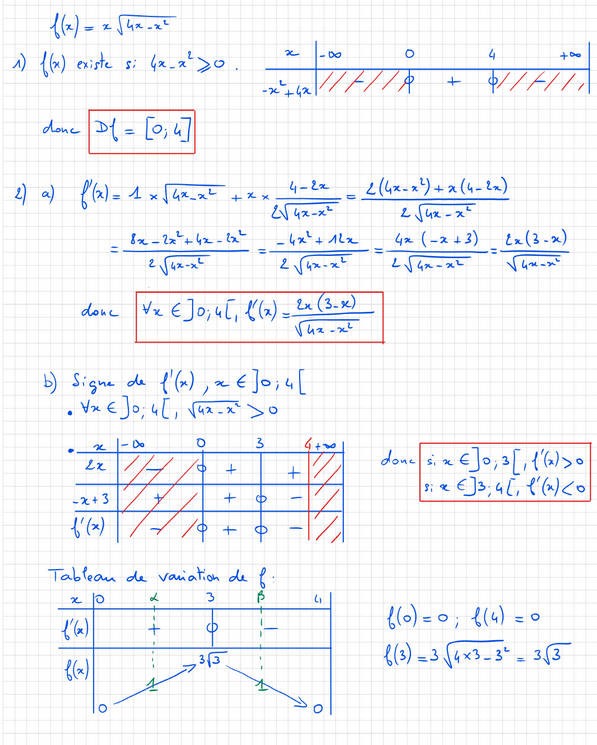 f(x) = x √(4x-x²)
1) f(x) existe si 4x-x² ⩾ 0.
x | -∞ 0 4 +∞
-x²+4x | - 0 + 0 -
donc Df = [0;4]
2) a) f'(x) = 1 × √(4x-x²) + x × (4-2x)/(2√(4x-x²)) = (2(4x-x²)+x(4-2x))/(2√(4x-x²))
= (8x-2x²+4x-2x²)/(2√(4x-x²)) = (-4x²+12x)/(2√(4x-x²)) = (4x(-x+3))/(2√(4x-x²)) = (2x(3-x))/√(4x-x²)
donc ∀x ∈ ]0;4[, f'(x) = (2x(3-x))/√(4x-x²)
b) Signe de f'(x), x ∈ ]0;4[
• ∀x ∈ ]0;4[, √(4x-x²) > 0
• x | -∞ 0 3 4 +∞
2x | - 0 + +
-x+3 | + + 0 -
f'(x) | - 0 + 0 -
donc si x ∈ ]0;3[, f'(x) > 0
si x ∈ ]3;4[, f'(x) < 0
Tableau de variation de f:
x | 0 α 3 β 4
f'(x) | + 0 -
f(x) | 0 1 3√3 1 0
f(0) = 0 ; f(4) = 0
f(3) = 3√(4×3-3²) = 3√3